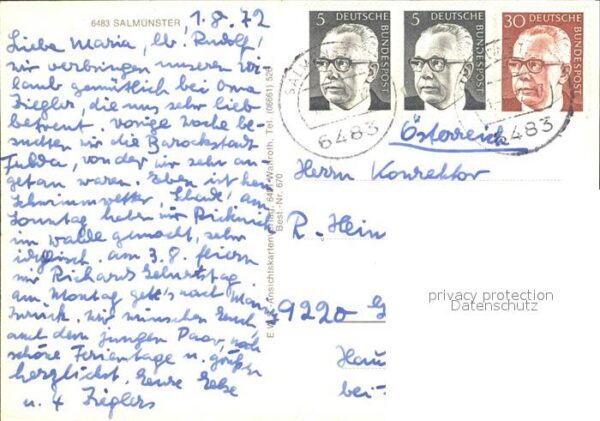 6483 SALMÜNSTER
1.8.72
Liebe Maria, lb. Rudolf!
wir verbringen unseren Ur-
laub gemütlich bei Oma
Ziegler, die uns sehr lieb
betreut. Vorige Woche be-
suchten wir die Barockstadt
Fulda, von der wir sehr an-
getan waren. Eben ist kein
Schwimmwetter, Schade! Am
Sonntag haben wir Picknick
im Walde gemacht, sehr
idyllisch. Am 3.8. feiern
wir Richards Geburtstag
am Montag geht's nach
zurück. Wir wünschen Euch
und dem jungen Paar, noch
schöne Ferientage u. grüßen
herzlichst Eure
u. 4 Zieglers
Ansichtskartenverlag, Tel. (06661) 525
Best.-Nr. 670
5 DEUTSCHE BUNDESPOST
5 DEUTSCHE BUNDESPOST
30 DEUTSCHE BUNDESPOST
6483
6483
Österreich
Herrn Konrektor
R. Hein
9220
Hau
bei
privacy protection
Datenschutz